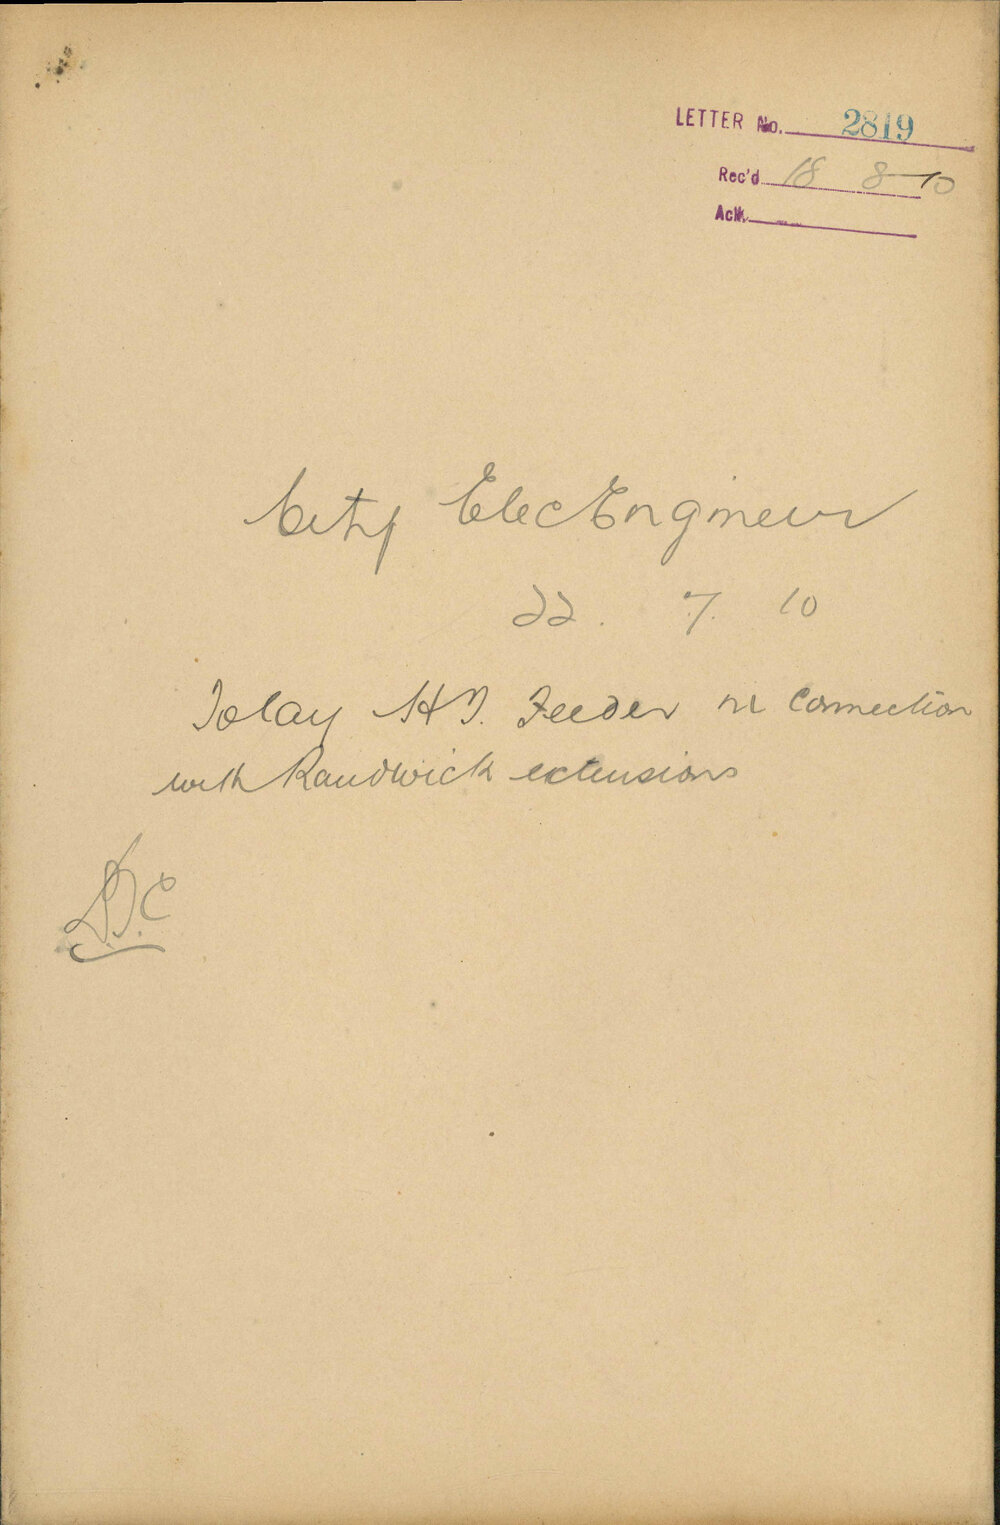 LETTER No. 2819
Rec'd 18 8 10
Ack.
City Elec Engineer
22. 7. 10
To lay H T. Feeder in connection
with Randwick extensions